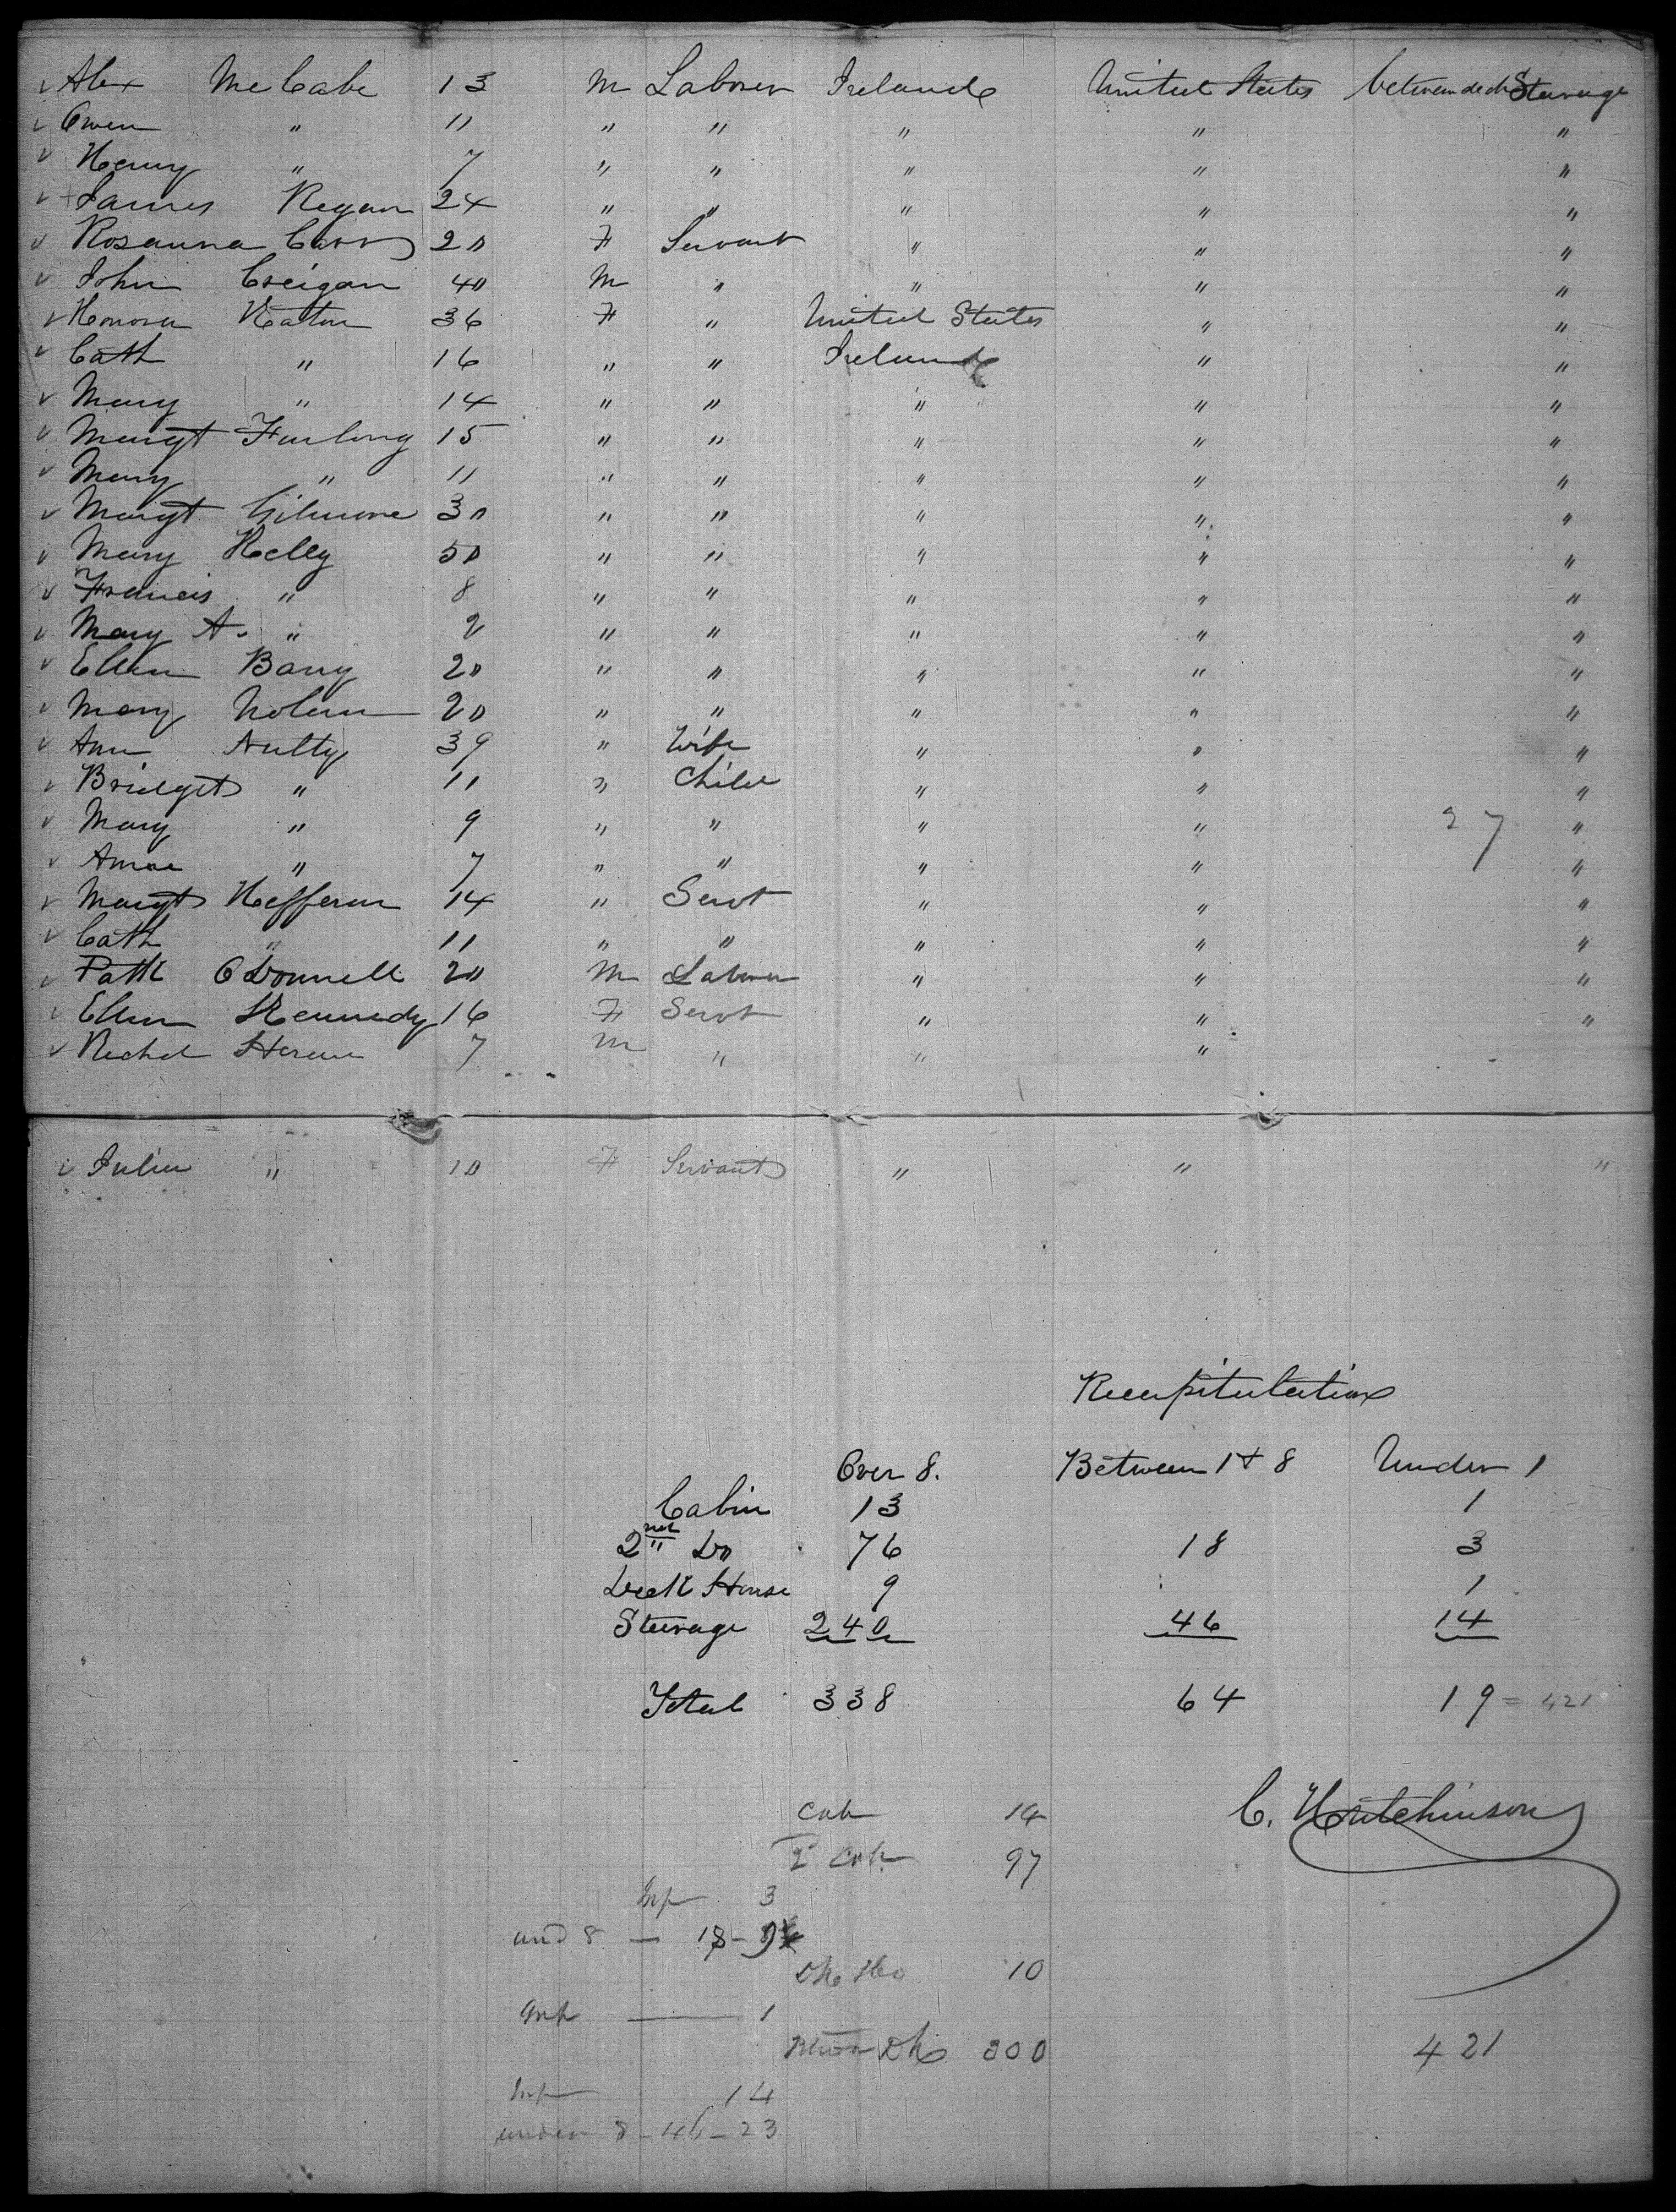 ✓ Alex McCabe 13 M Laborer Ireland United States between decks Steerage
✓ Owen " 11 " " " " "
✓ Henry " 7 " " " " "
✓ + James Regan 24 " " " " "
✓ Rosanna Carr 20 F Servant " " "
✓ John Creigan 40 M " " " "
✓ Honora Keaton 36 F " United States " "
✓ Cath " 16 " " Ireland " "
✓ Mary " 14 " " " " "
✓ Margt Furlong 15 " " " " "
✓ Mary " 11 " " " " "
✓ Margt Gilmore 30 " " " " "
✓ Mary Kelly 50 " " " " "
✓ Francis " 8 " " " " "
✓ Mary A. " 2 " " " " "
✓ Ellen Barry 20 " " " " "
✓ Mary Nolan 20 " " " " "
✓ Ann Nulty 39 " Wife " " "
✓ Bridget " 11 " Child " " "
✓ Mary " 9 " " " " 27 "
✓ Anne " 7 " " " " "
✓ Margt Heffernan 14 " Servt " " "
✓ Cath " 11 " " " " "
✓ Patk O'Donnell 20 M Laborer " " "
✓ Ellen Kennedy 16 F Servt " " "
✓ Michel 7 M " " "
✓ Julia " 10 F Servant " " "
Recapitulation
Over 8. Between 1 + 8 Under 1
Cabin 13 1
2nd Do 76 18 3
Deck House 9 1
Steerage 240 46 14
Total 338 64 19 = 421
C. Hutchinson
Cab 14
2 Cab. 97
Inf 3
und 8 — 18 - 9
Dk Ho 10
Inf — 1
Dk 300
421
Inf 14
under 8 - 46 - 23